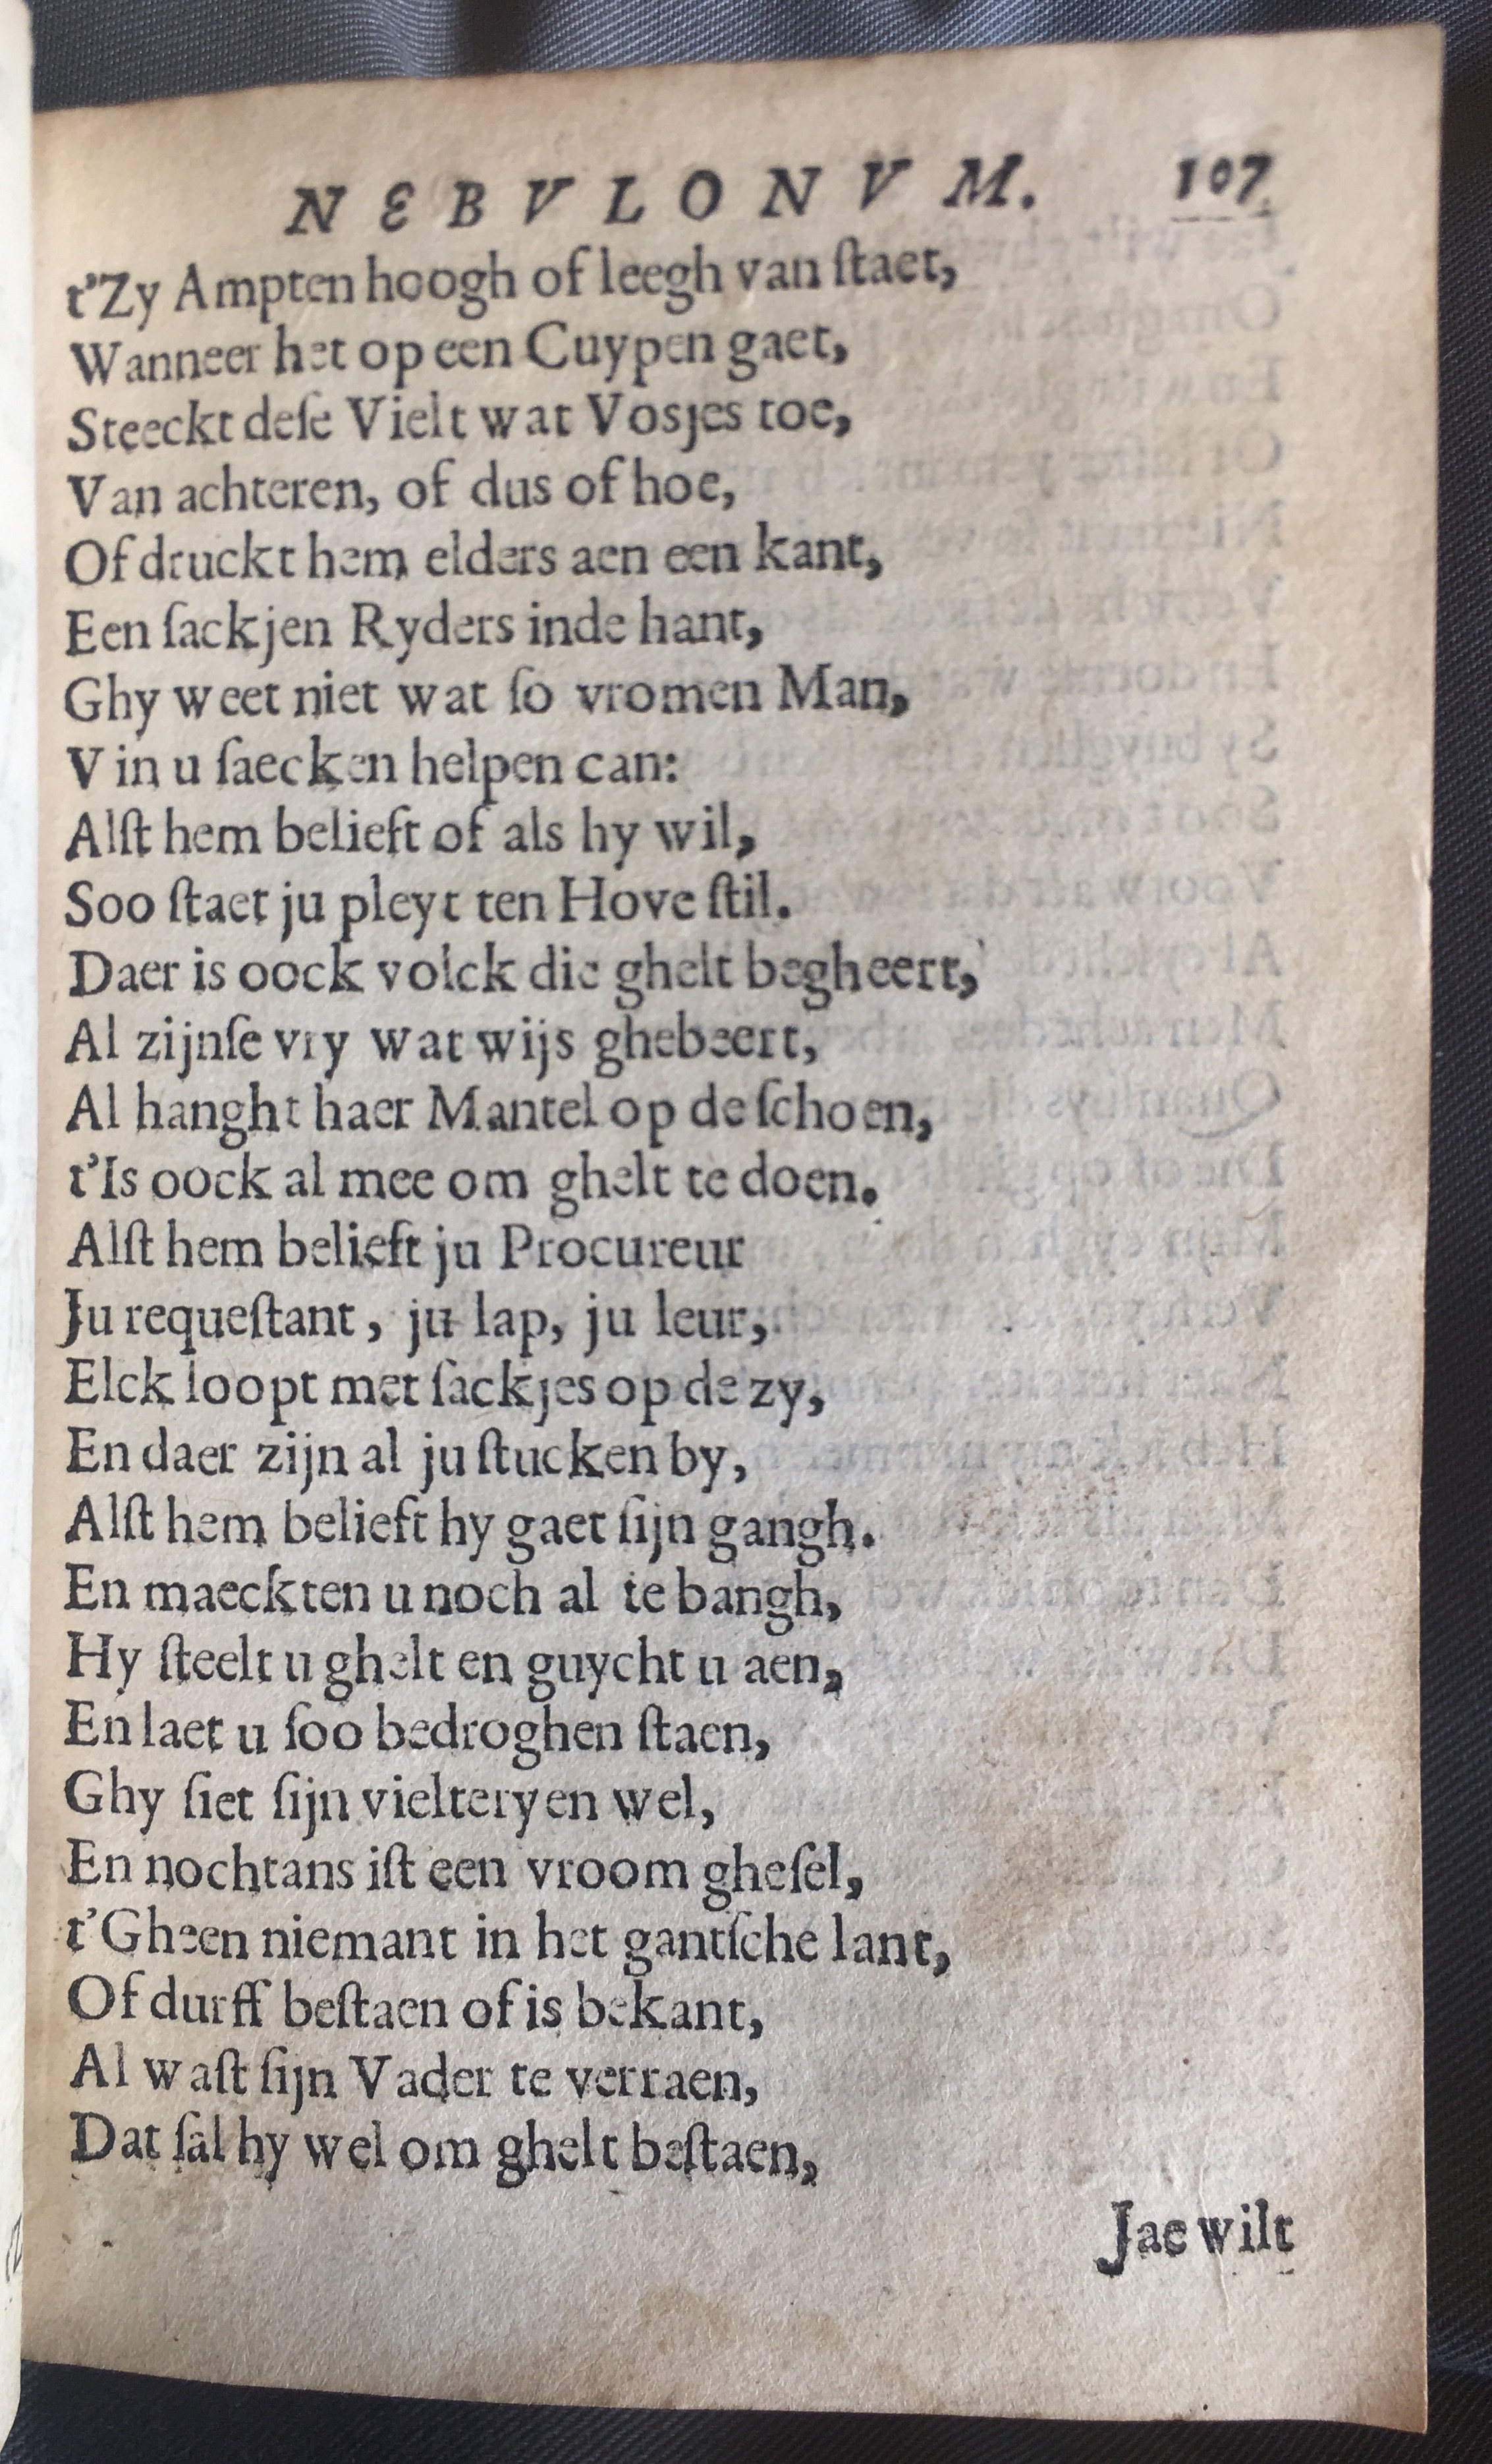 NEBVLONVM. 107
t'Zy Ampten hoogh of leegh van ſtaet,
Wanneer het op een Cuypen gaet,
Steeckt deſe Vielt wat Vosjes toe,
Van achteren, of dus of hoe,
Of druckt hem elders aen een kant,
Een ſackjen Ryders inde hant,
Ghy weet niet wat ſo vromen Man,
V in u ſaecken helpen can:
Alſt hem belieft of als hy wil,
Soo ſtaet ju pleyt ten Hove ſtil.
Daer is oock volck die ghelt begheert,
Al zijnſe vry wat wijs ghebeert,
Al hanght haer Mantel op de ſchoen,
t'Is oock al mee om ghelt te doen.
Alſt hem belieft ju Procureur
Ju requeſtant, ju lap, ju leur,
Elck loopt met ſackjes op de zy,
En daer zijn al ju ſtucken by,
Alſt hem belieft hy gaet ſijn gangh.
En maeckten u noch al te bangh,
Hy ſteelt u ghelt en guycht u aen,
En laet u ſoo bedroghen ſtaen,
Ghy ſiet ſijn vielteryen wel,
En nochtans iſt een vroom gheſel,
t'Gheen niemant in het gantſche lant,
Of durff beſtaen of is bekant,
Al waſt ſijn Vader te verraen,
Dat ſal hy wel om ghelt beſtaen,
Jae wilt